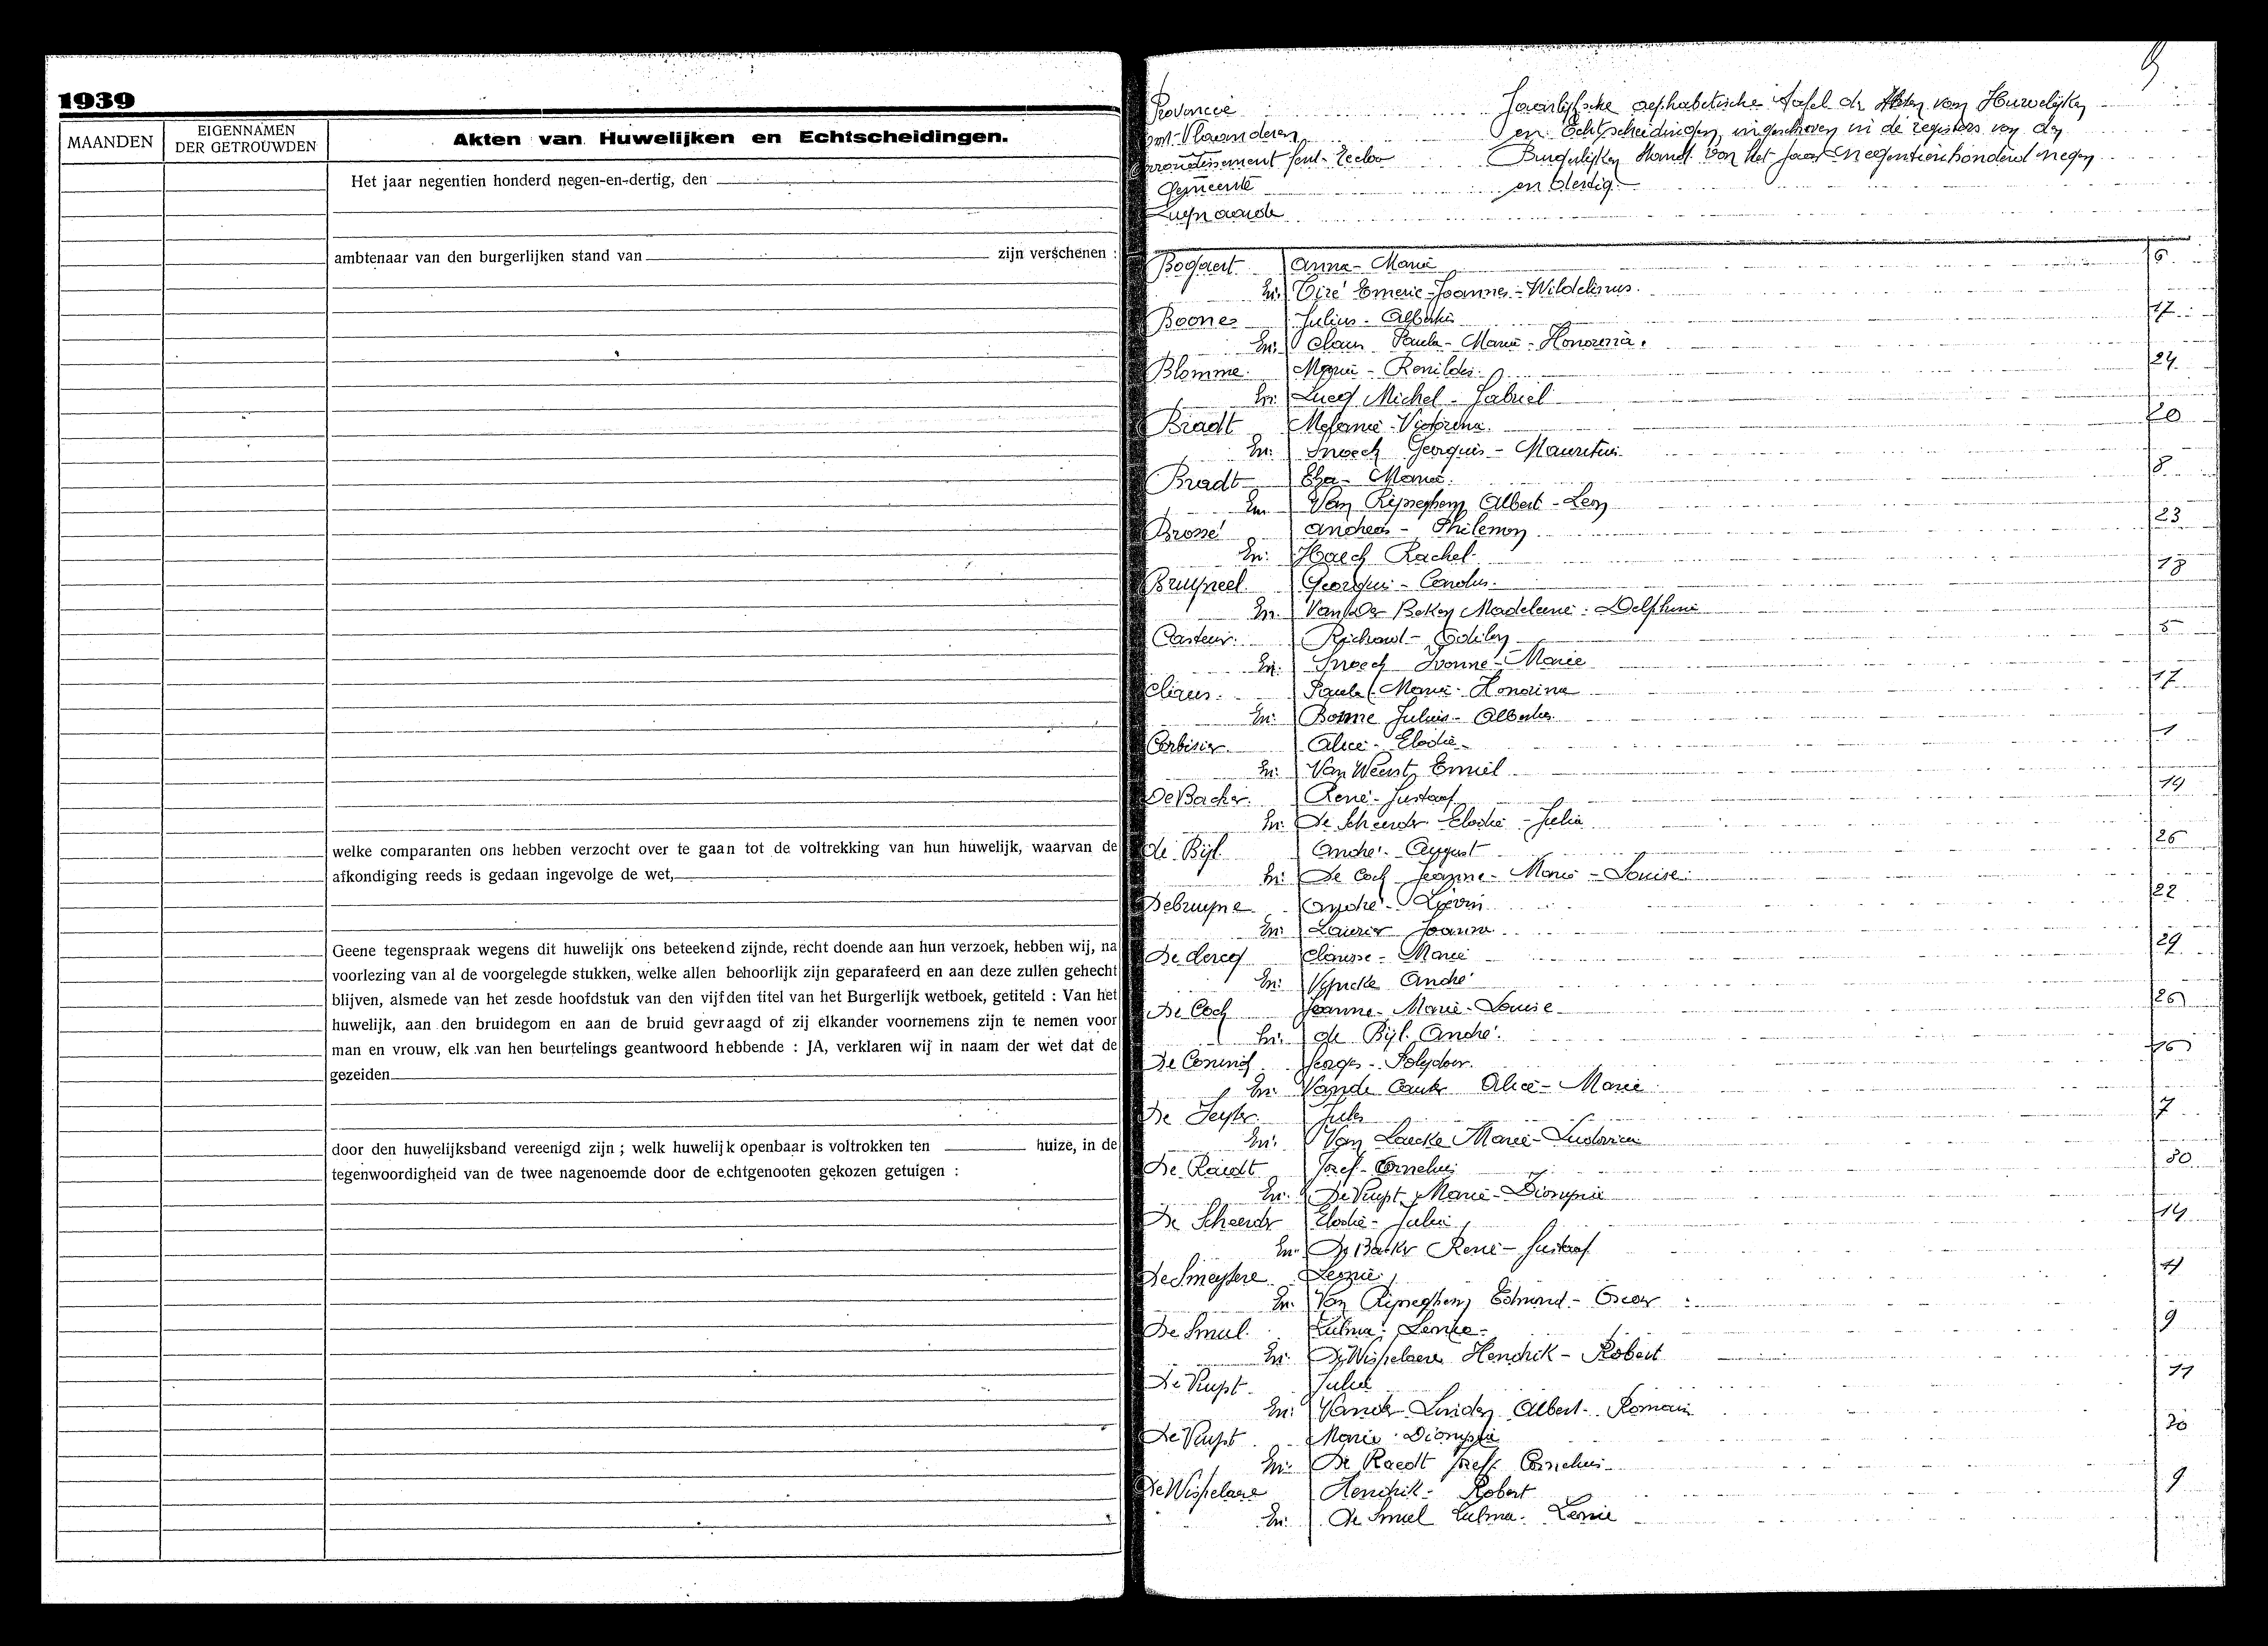 1939
MAANDEN
EIGENNAMEN
DER GETROUWDEN
Akten van Huwelijken en Echtscheidingen.
Het jaar negentien honderd negen-en-dertig, den
ambtenaar van den burgerlijken stand van zijn verschenen :
welke comparanten ons hebben verzocht over te gaan tot de voltrekking van hun huwelijk, waarvan de
afkondiging reeds is gedaan ingevolge de wet,
Geene tegenspraak wegens dit huwelijk ons beteekend zijnde, recht doende aan hun verzoek, hebben wij, na
voorlezing van al de voorgelegde stukken, welke allen behoorlijk zijn geparafeerd en aan deze zullen gehecht
blijven, alsmede van het zesde hoofdstuk van den vijfden titel van het Burgerlijk wetboek, getiteld : Van het
huwelijk, aan den bruidegom en aan de bruid gevraagd of zij elkander voornemens zijn te nemen voor
man en vrouw, elk van hen beurtelings geantwoord hebbende : JA, verklaren wij in naam der wet dat de
gezeiden
door den huwelijksband vereenigd zijn ; welk huwelijk openbaar is voltrokken ten huize, in de
tegenwoordigheid van de twee nagenoemde door de echtgenooten gekozen getuigen :
Provincie
Oost-Vlaanderen
Arrondissement Gent-Eecloo
Gemeente
Jaarlijksche alphabetische tafel der Akten van Huwelijken
en Echtscheidingen, ingeschreven in de registers van den
Burgerlijken Stand van het jaar negentienhonderd negen
en dertig.
Bogaert Anna-Maria 6
En: Emeric-Joannes-
Boone Julius-Albertus 17
En: Claus Paula-Maria-Honorina.
Blomme Maria-Renilda 24
En: Michel-Gabriel
Bradt Melanie-Victorina 20
En: Snoeck Georges-Mauritius
Bradt Elza-Maria 8
En: Van Ripseghem Albert-Leon
Brosse Andreas-Philemon 23
En: Haeck Rachel
Bruyneel Georges-Carolus 18
En: Madeleine-Delphine
Casteur Richard-Odilon 5
En: Snoeck Ivonne-Marie
Claus Paula-Maria-Honorina 17
En: Boone Julius-Albertus
Corbisier Alice-Elodie 1
En: Emiel
De Backer René-Gustaaf 14
En: De Scheerder Elodie-Julia
de Bijl André-August 26
En: De Cock Jeanne-Marie-Louise
Debruyne André-Lievin 22
En: Joanna
De Clercq Clarisse-Marie 29
En: Vyncke André
De Cock Jeanne-Marie-Louise 26
En: de Bijl André
De Coninck Polydoor
En: Alice-Marie
Jules 7
En: Van Laecke Marie-Ludovica
De Raedt Jozef-Cornelius 30
En: De Vuyst Marie-Dionysia
De Scheerder Elodie-Julia 14
En: De Backer René-Gustaaf
De Smeytere Leonie 4
En: Van Ripseghem Edmond-Oscar
De Smul Zulma-Leonie 9
En: De Wispelaere Hendrik-Robert
De Vuyst Julia 11
En: Vander Linden Albert-Romain
De Vuyst Marie-Dionysia 30
En: De Raedt Jozef Cornelius
De Wispelaere Hendrik-Robert 9
En: De Smul Zulma-Leonie